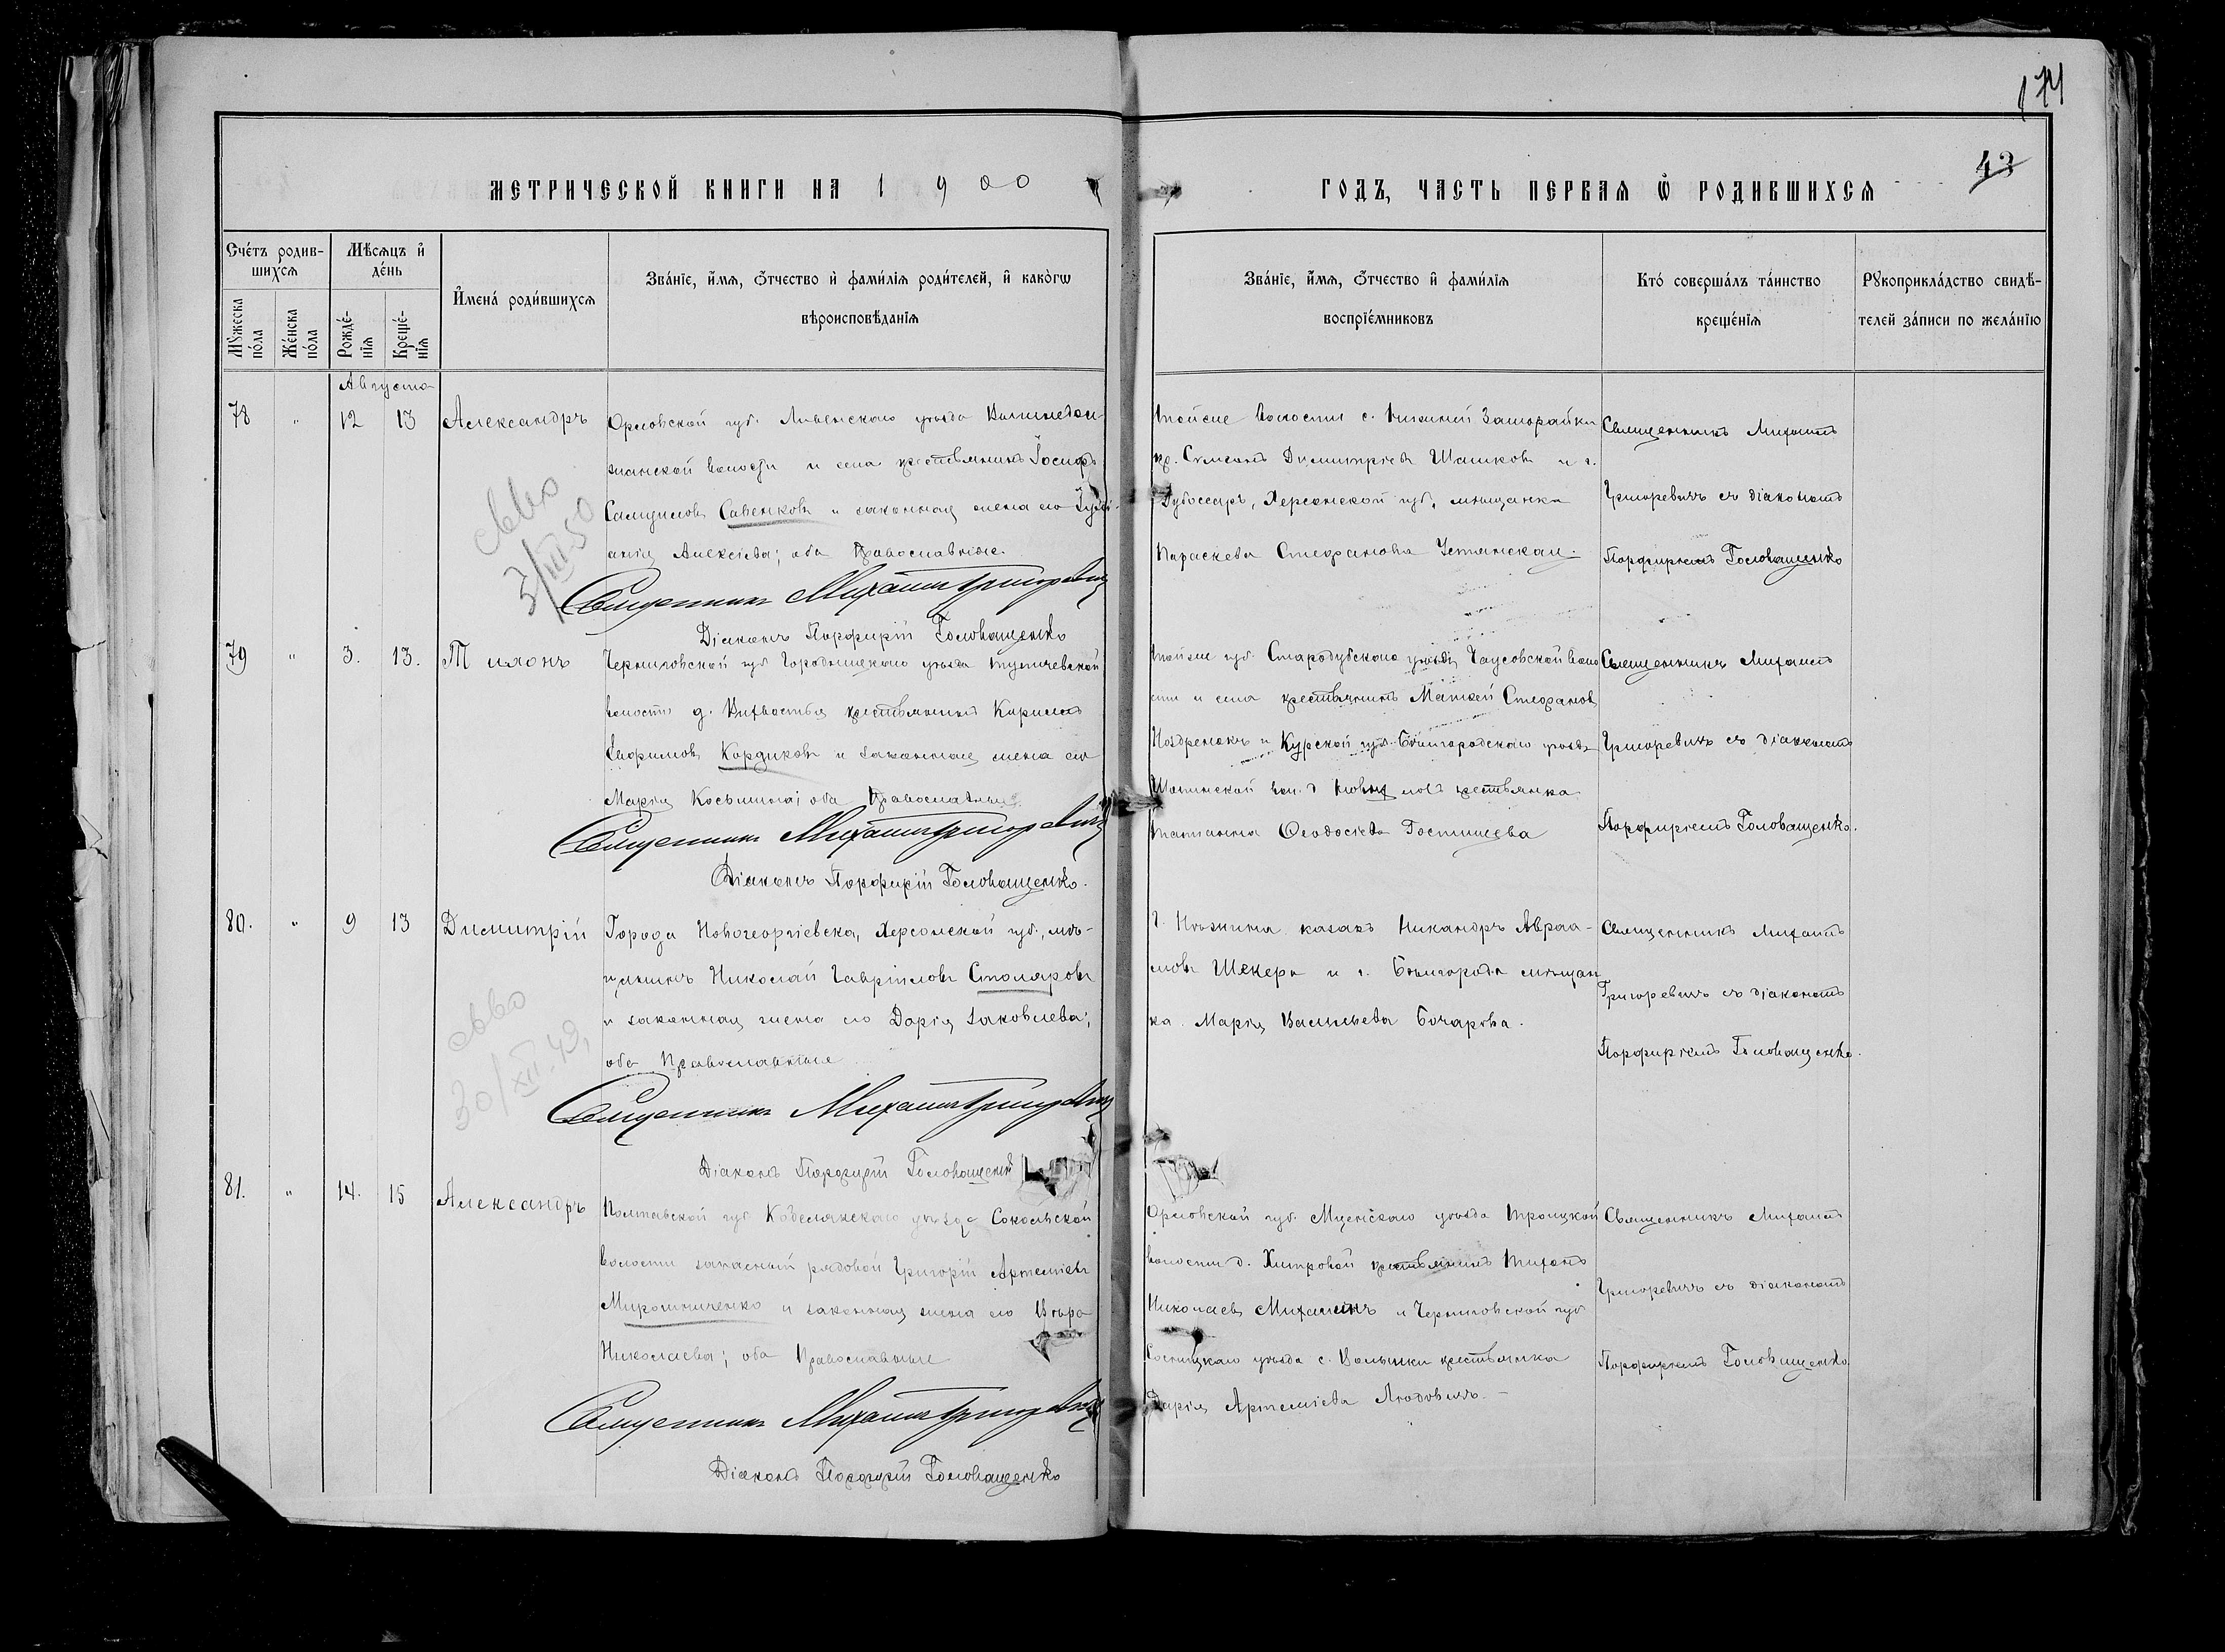 174
43
МЕТРИЧЕСКОЙ КНИГИ НА 1900
ГОДЪ, ЧАСТЬ ПЕРВАЯ Ѡ РОДИВШИХСЯ
Сче́тъ родив-
шихся
Мѣсяцъ и҆
де́нь
И҆мена́ роди́вшихся
Зва́нїе, и҆́мя, ѻ҆́тчество и҆ фами́лїя роди́телей, и҆ како́гѡ
вѣроисповѣ́данїя
Мꙋ́жеска
по́ла
Же́нска
по́ла
Рожде́-
нїя
Креще́-
нїя
Зва́нїе, и҆́мя, ѻ҆́тчество и҆ фами́лїя
воспрїе́мниковъ
Кто́ соверша́лъ та́инство
креще́нїя
Рꙋкоприкла́дство свидѣ́-
телей за́писи по жела́нїю
Августа
78 " 12 13 Александръ
Орловской губ. Ливенскаго уѣзда
волости и села крестьянинъ
Самуиловъ Савенковъ и законная жена его
Алексіева; оба Православные.
Священникъ Михаилъ Григоревичъ
Діаконъ Порфирій Головащенко
Тойже волости с.
кр. Димитріевъ Шашковъ и г.
Дубоссаръ, Херсонской губ. мѣщанка
Параскева Стефанова
Священникъ Михаилъ
Григоревичъ съ діакономъ
Порфиріемъ Головащенко
свво
3/XII 50
79 " 3. 13. Тихонъ
Черниговской губ. Городницкаго уѣзда Тупичевской
волости д. крестьянинъ Кириллъ
Ефимовъ Кордиковъ и законная жена его
Марія Косьмина; оба Православные.
Священникъ Михаилъ Григоревичъ
Діаконъ Порфирій Головащенко.
Тойже губ. Стародубскаго уѣзда Чаусовской воло
сти и села крестьянинъ Матѳей Стефановъ
Ноздренокъ и Курской губ. Бѣлгородскаго уѣзда
вол. д. крестьянка
Татіанна Ѳеодосіева Гостищева
Священникъ Михаилъ
Григоревичъ съ діакономъ
Порфиріемъ Головащенко.
80. " 9 13 Димитрій
Города Новогеоргіевска, Херсонской губ., мѣ-
щанинъ Николай Гавріиловъ Столяровъ
и законная жена его Дарія Іаковлева;
оба Православные
Священникъ Михаилъ Григоревичъ
Діаконъ Порфирій Головащенко
г. Нѣжина казакъ Никандръ Авраа-
мовъ Шекера и г. Бѣлгорода мѣщан
ка Марія Васильева Бочарова.
Священникъ Михаилъ
Григоревичъ съ діакономъ
Порфиріемъ Головащенко.
свво
30/XII.49,
81. " 14. 15 Александръ
Полтавской губ. Кобелякскаго уѣзда Сокольской
волости запасный рядовой Григорій Артеміевъ
Мирошниченко и законная жена его Вѣра
Николаева; оба Православные
Священникъ Михаилъ Григоревичъ
Діаконъ Порфирій Головащенко
Орловской губ. Мценскаго уѣзда Троицкой
волости д. Хитровой крестьянинъ Тихонъ
Николаевъ Михалинъ и Черниговской губ
Сосницкаго уѣзда с. Волынки крестьянка
Дарія Артеміева Людовичъ.
Священникъ Михаилъ
Григоревичъ съ діакономъ
Порфиріемъ Головащенко